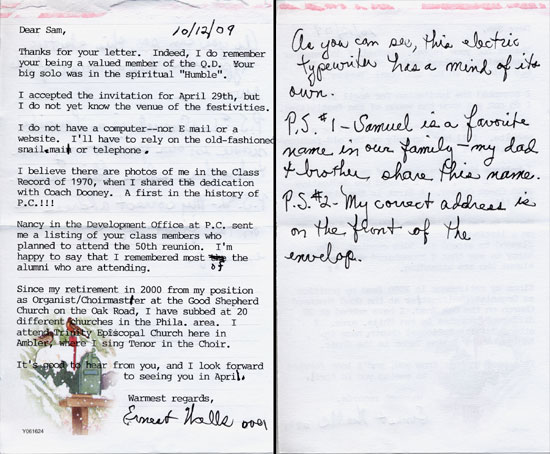 Dear Sam,
10/12/09
Thanks for your letter. Indeed, I do remember
your being a valued member of the Q.D. Your
big solo was in the spiritual "Humble".
I accepted the invitation for April 29th, but
I do not yet know the venue of the festivities.
I do not have a computer--nor E mail or a
website. I'll have to rely on the old-fashioned
snail mail or telephone.
I believe there are photos of me in the Class
Record of 1970, when I shared the dedication
with Coach Dooney. A first in the history of
P.C.!!!
Nancy in the Development Office at P.C. sent
me a listing of your class members who
planned to attend the 50th reunion. I'm
happy to say that I remembered most of the
alumni who are attending.
Since my retirement in 2000 from my position
as Organist/Choirmaster at the Good Shepherd
Church on the Oak Road, I have subbed at 20
different Churches in the Phila. area. I
attend Trinity Episcopal Church here in
Ambler, where I sing Tenor in the Choir.
It's good to hear from you, and I look forward
to seeing you in April.
Warmest regards,
Ernest Walls over
Y061624
As you can see, this electric
typewriter has a mind of its
own.
P.S. #1 - Samuel is a favorite
name in our family - my dad
& brother share this name.
P.S. #2 - My correct address is
on the front of the
envelop.